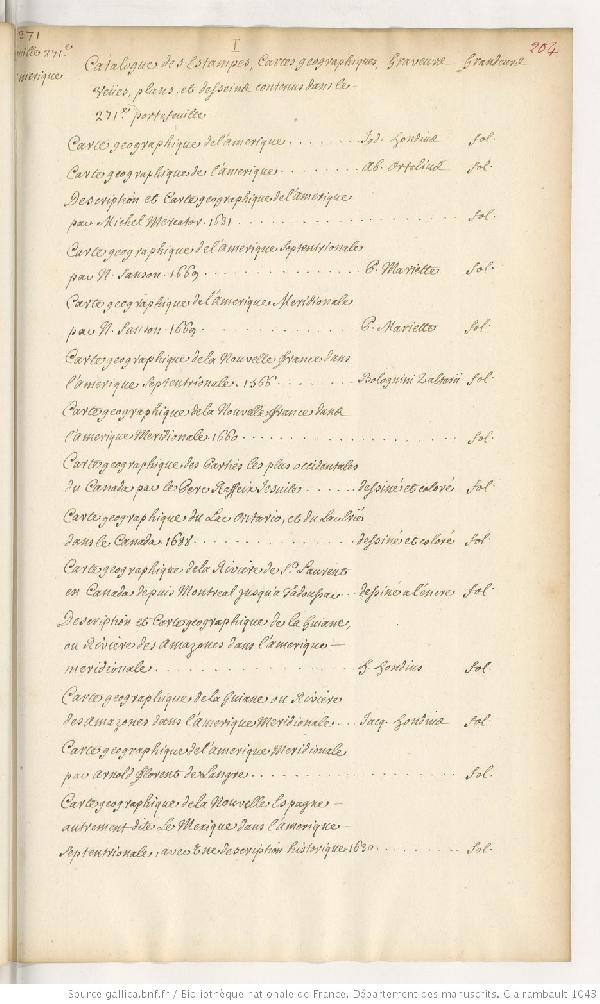 271
I
204
Catalogue des Estampes, Cartes geographiques, Graveurs Grandeurs
veües, plans, et desseins contenus dans le
271e portefeuille
merique
Carte geographique de l'amerique ....... Jod. Hondius fol.
Carte geographique de l'amerique ....... Ab. Ortelius fol.
Description et Carte geographique de l'amerique
par Michel Mercator. 1631 ....... fol.
Carte geographique de l'amerique septentrionale
par N. Sanson. 1669 ....... P. Mariette fol.
Carte geographique de l'amerique Meridionale
par N. Sanson. 1669 ....... P. Mariette fol.
Carte geographique de la Nouvelle france dans
l'amerique septentrionale. 1566 ....... Bolognini Zalterii fol.
Carte geographique de la Nouvelle france dans
l'amerique Meridionale 1660 ....... fol.
Carte geographique des Parties les plus occidentales
du Canada par le Pere Raffeix Jesuite ....... dessiné et coloré fol.
Carte geographique du Lac Ontario, et du Lac Erié
dans le Canada 1688 ....... dessiné et coloré fol.
Carte geographique de la Riviere de St. Laurent
en Canada depuis Montreal jusqu'a Tadoussac ... dessiné a l'encre fol.
Description et Carte geographique de la Guiane,
ou Riviere des Amazones dans l'amerique
meridionale ....... H. Hondius fol.
Carte geographique de la Guiane ou Riviere
des Amazones dans l'Amerique Meridionale ... Jacq. Hondius fol.
Carte geographique de l'amerique Meridionale
par Arnold Florent de Langre ....... fol.
Carte geographique de la Nouvelle Espagne
autrement dite Le Mexique dans l'amerique
septentrionale, avec une description historique 1630 ....... fol.
Source gallica.bnf.fr / Bibliothèque nationale de France. Département des manuscrits. Clairambault 1043